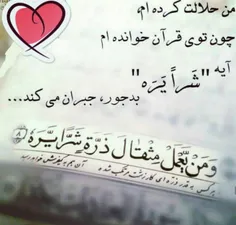 من حلالت کرده ام،
چون توی قرآن خوانده ام
آیه "شَراً یَرَه"
بدجور، جبران می کند...
وَمَن يَعۡمَلۡ مِثۡقَالَ ذَرَّةٖ شَرّٗا يَرَهُۥ ٨